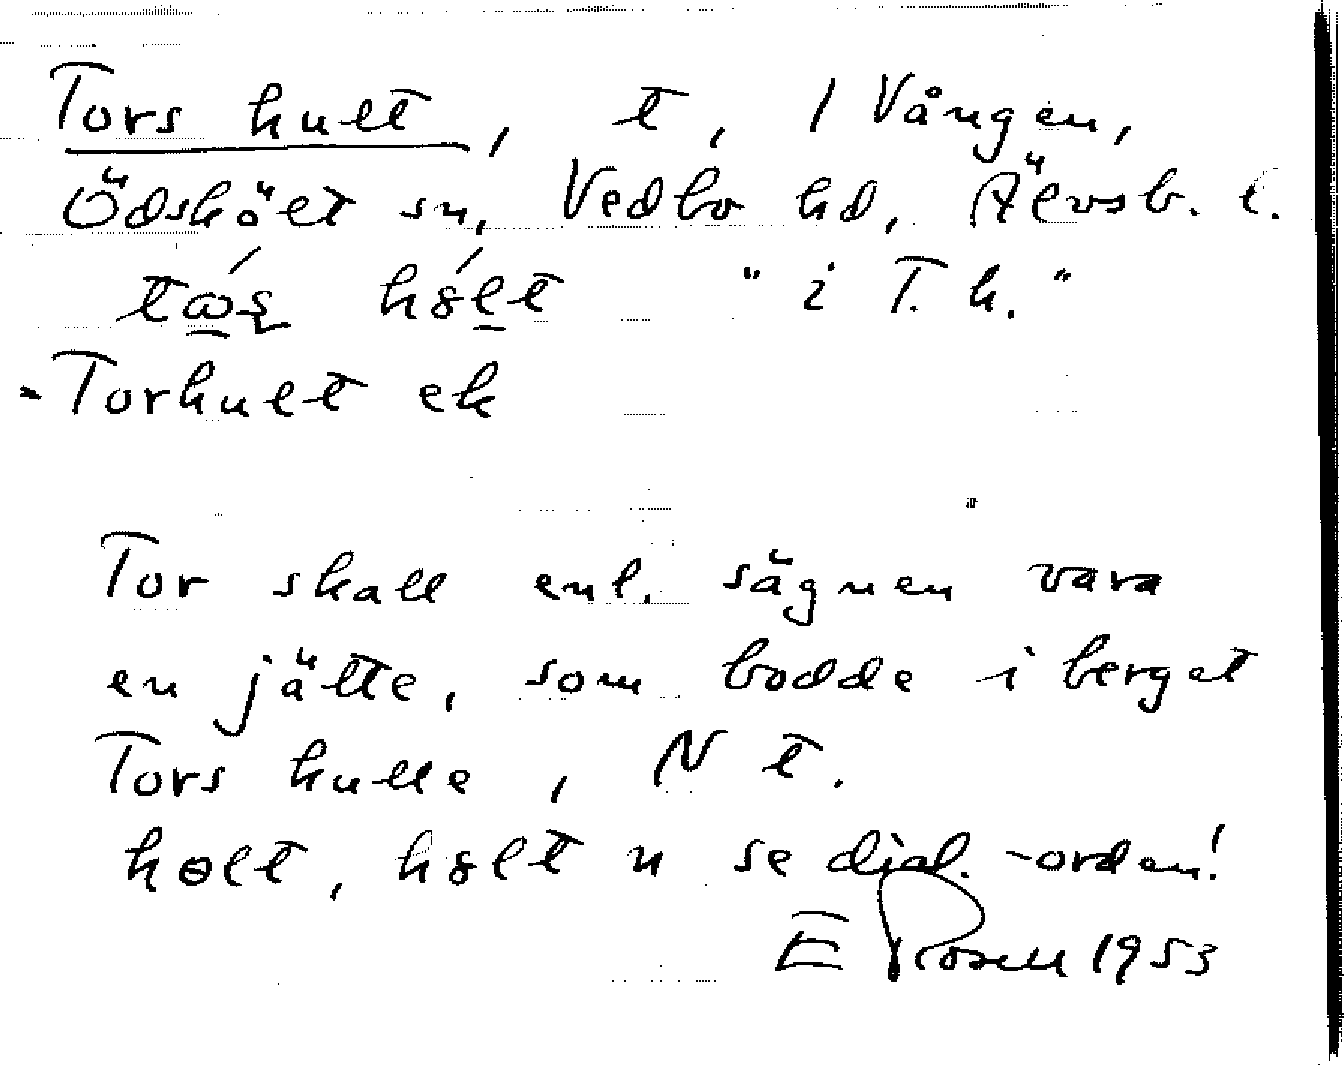 Tors hult, t, 1 Vången,
Ödskölt sn, Vedbo hd, Älvsb. l.
"i T. h."
- Torhult ek
Tor skall enl. sägnen vara
en jätte, som bodde i berget
Tors hulle, N t.
hɵlt, hɞlt n se dial. -orden!
E Rosell 1953